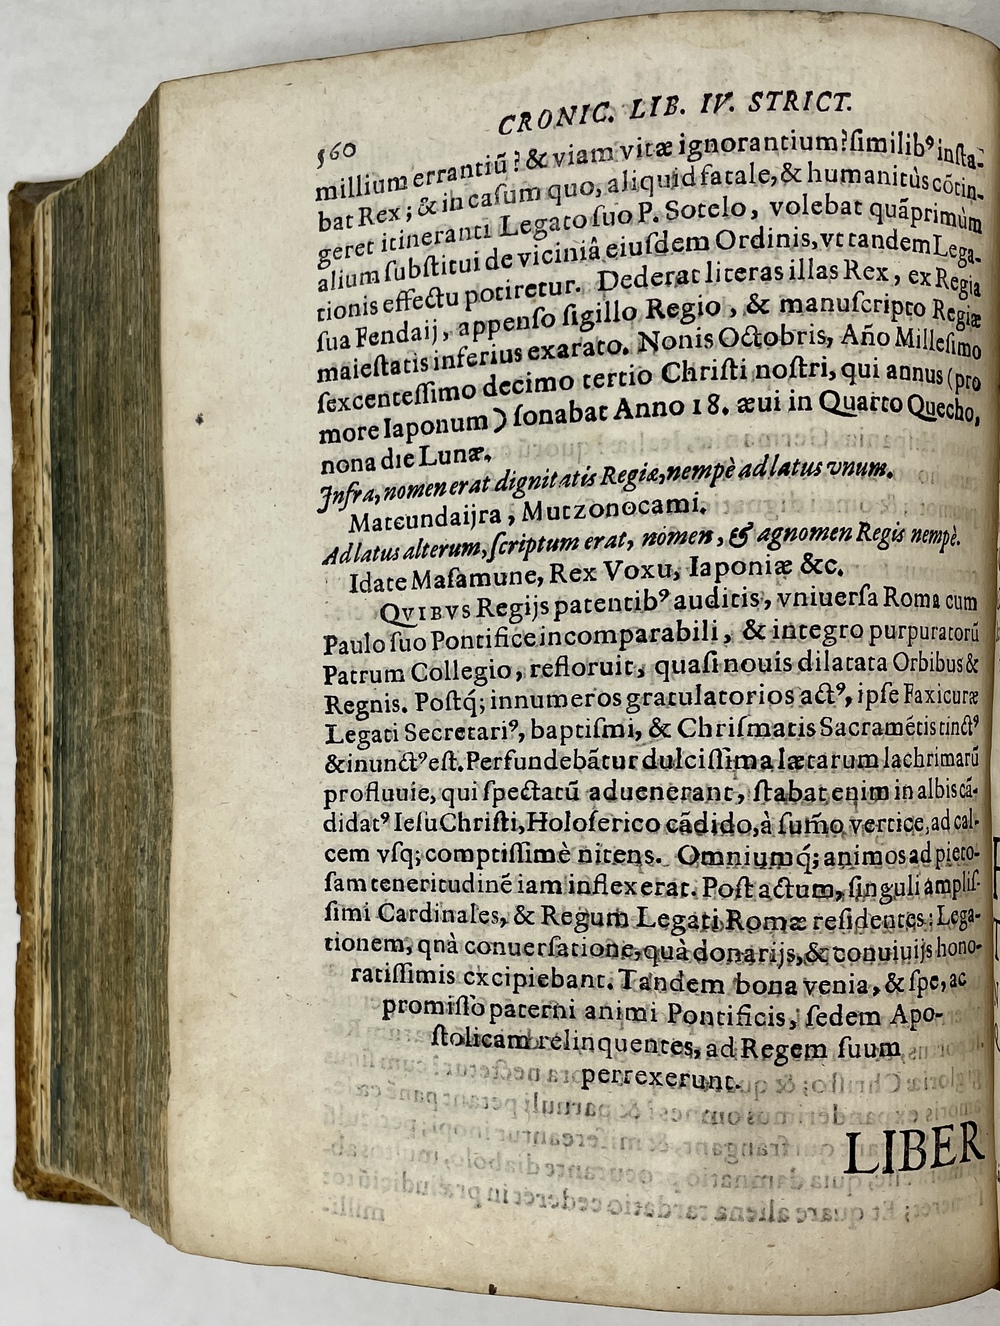 560
CRONIC. LIB. IV. STRICT.
millium errantiũ? & viam vitæ ignorantium? ſimilibꝰ inſta-
bat Rex; & in caſum quo, aliquid fatale, & humanitùs cõtin-
geret itineranti Legato ſuo P. Sotelo, volebat quãprimùm
alium ſubſtitui de viciniâ eiuſdem Ordinis, vt tandem Lega-
tionis effectu potiretur. Dederat literas illas Rex, ex Regia
ſua Fendaij, appenſo ſigillo Regio, & manuſcripto Regiæ
maieſtatis inferius exarato. Nonis Octobris, Año Milleſimo
ſexcenteſſimo decimo tertio Chriſti noſtri, qui annus (pro
more Iaponum) ſonabat Anno 18. æui in Quarto Quecho,
nona die Lunæ.
Infra, nomen erat dignitatis Regiæ, nempè ad latus vnum.
Mateundaijra, Mutzonocami.
Ad latus alterum, ſcriptum erat, nomen, & agnomen Regis nempè.
Idate Maſamune, Rex Voxu, Iaponiæ &c.
QVIBVS Regijs patentibꝰ auditis, vniuerſa Roma cum
Paulo ſuo Pontifice incomparabili, & integro purpuratorũ
Patrum Collegio, refloruit, quaſi nouis dilatata Orbibus &
Regnis. Poſtq́; innumeros gratulatorios actꝰ, ipſe Faxicuræ
Legati Secretariꝰ, baptiſmi, & Chriſmatis Sacramẽtis tinctꝰ
& inunctꝰ eſt. Perfundebãtur dulciſſima lætarum lachrimarũ
profluuie, qui ſpectatũ aduenerant, ſtabat enim in albis cã-
didatꝰ Ieſu Chriſti, Holoſerico cãdido, à ſum̃o vertice, ad cal-
cem vſq; comptiſſimè nitens. Omniumq́; animos ad pieto-
ſam teneritudinẽ iam inflexerat. Poſt actum, ſinguli ampliſ-
ſimi Cardinales, & Regum Legati Romæ reſidentes: Lega-
tionem, qnà conuerſatione, quà donarijs, & conuiuijs hono-
ratiſſimis excipiebant. Tandem bona venia, & ſpe, ac
promiſſo paterni animi Pontificis, ſedem Apo-
ſtolicam relinquentes, ad Regem ſuum
perrexerunt.
LIBER